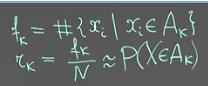 f_K = #{x_i | x_i ∈ A_K}
r_K = f_K / N ≈ P(X ∈ A_K)